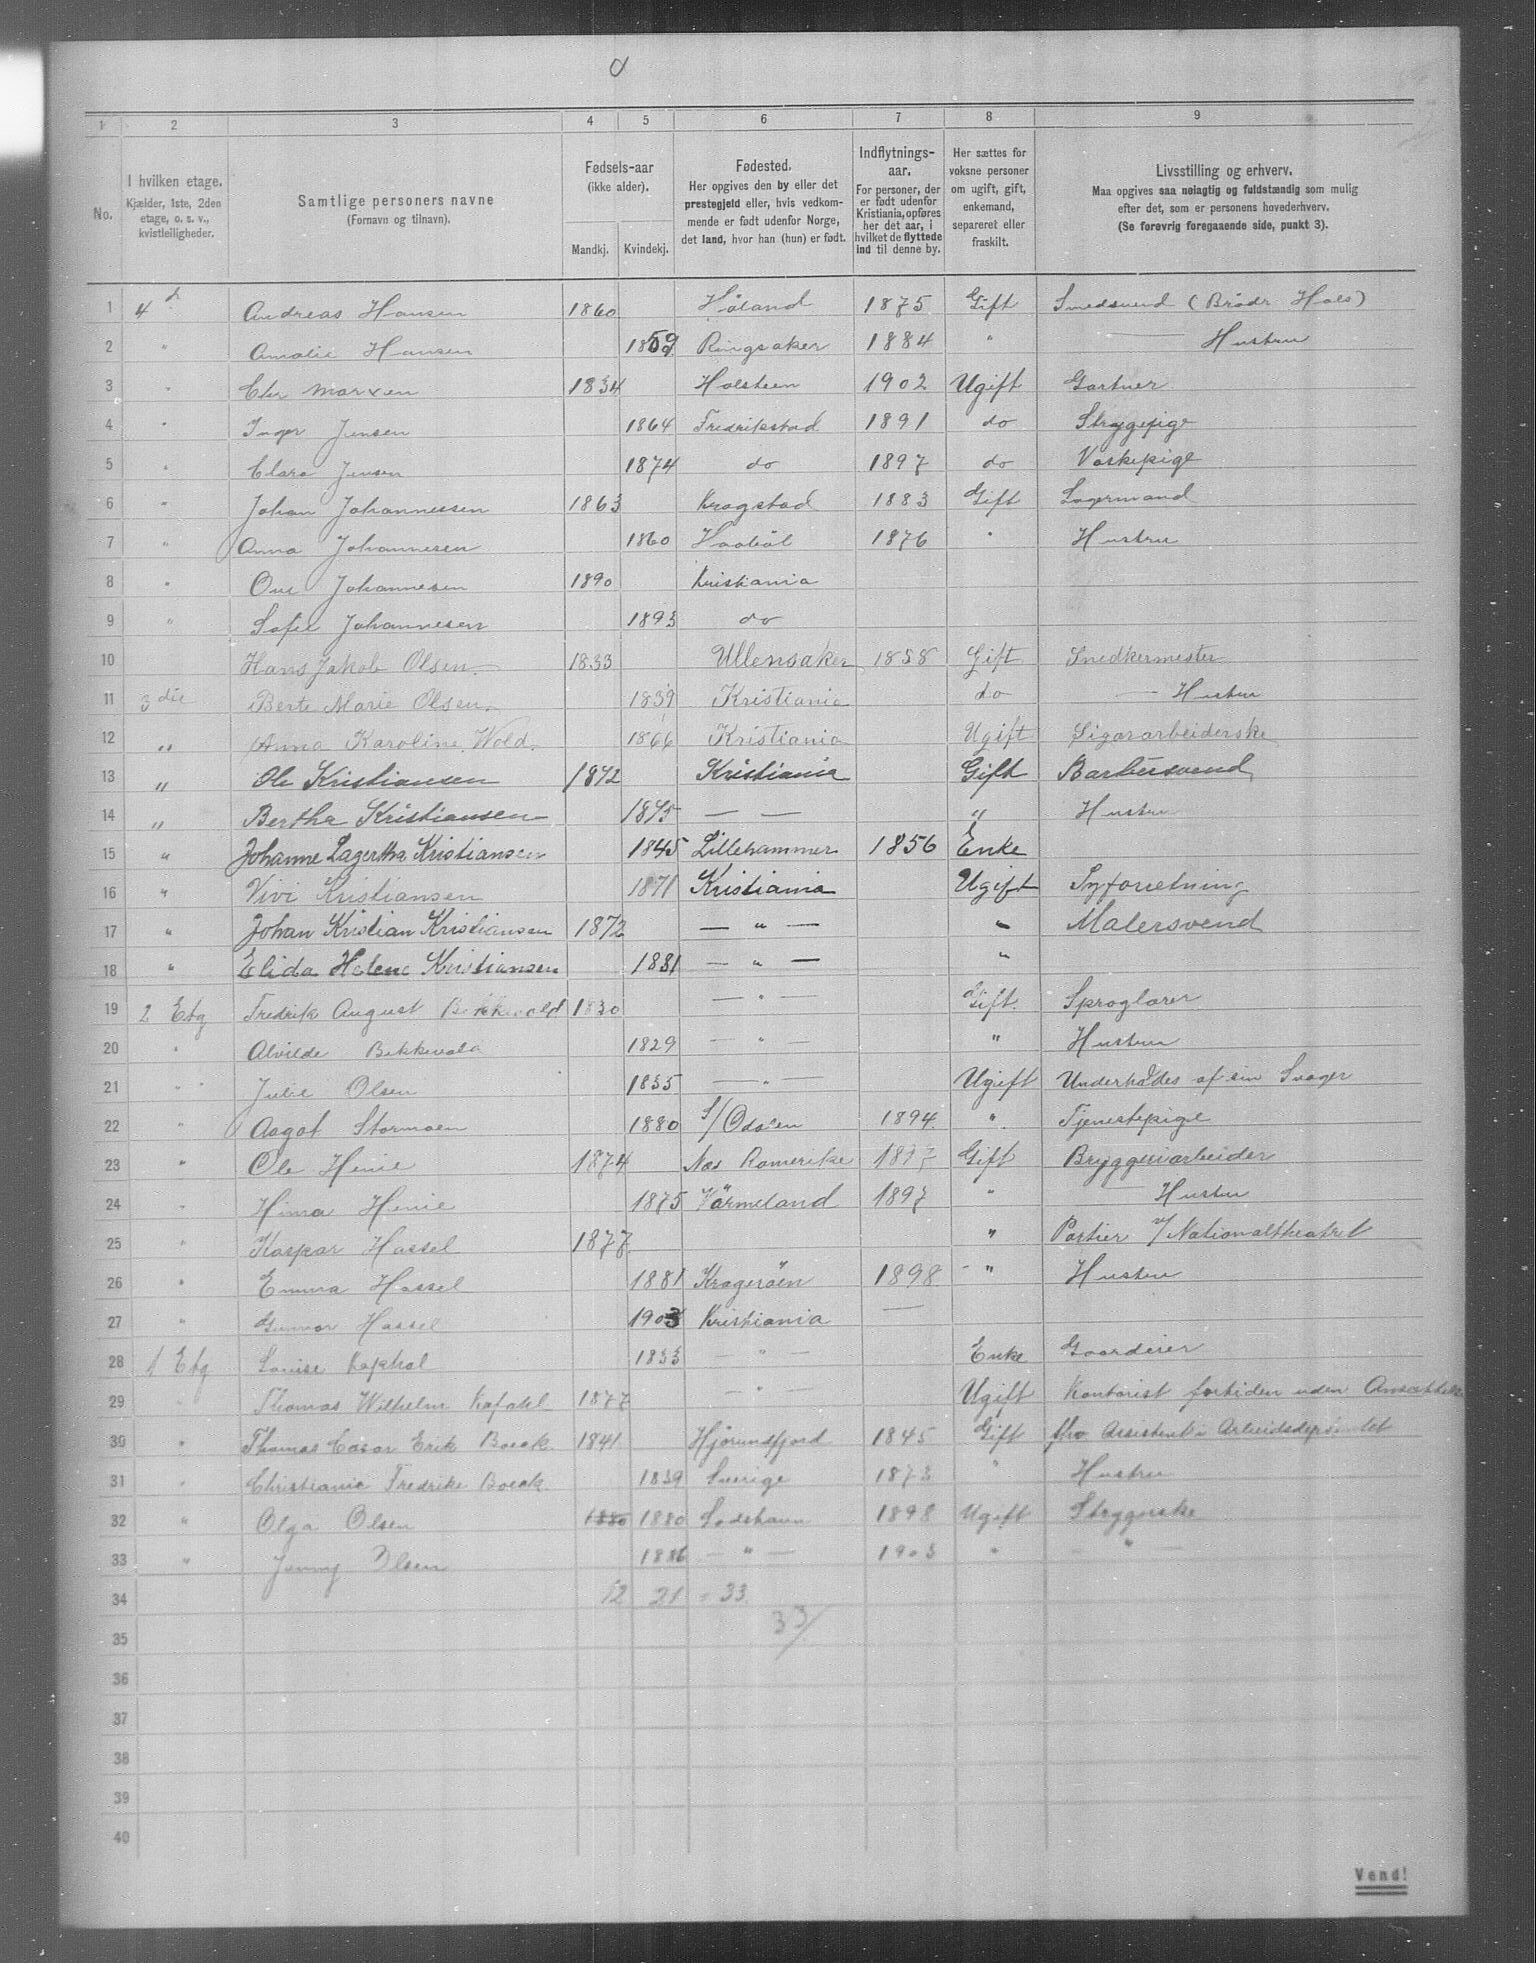 1 2 3 4 5 6 7 8 9
No.
I hvilken etage.
Kjælder, 1ste, 2den
etage, o. s. v.,
kvistleiligheder.
Samtlige personers navne
(Fornavn og tilnavn).
Fødsels-aar
(ikke alder).
Mandkj. Kvindekj.
Fødested.
Her opgives den by eller det
prestegjeld eller, hvis vedkom-
mende er født udenfor Norge,
det land, hvor han (hun) er født.
Indflytnings-
aar.
For personer, der
er født udenfor
Kristiania, opføres
her det aar, i
hvilket de flyttede
ind til denne by.
Her sættes for
voksne personer
om ugift, gift,
enkemand,
separeret eller
fraskilt.
Livsstilling og erhverv.
Maa opgives saa nøiagtig og fuldstændig som mulig
efter det, som er personens hovederhverv.
(Se forøvrig foregaaende side, punkt 3).
1 4 d Andreas Hansen 1860 Høland 1875 Gift Smedsvend (Brødr Hals)
2 " Amalie Hansen 1859 Ringsaker 1884 " — Hustru
3 " Marxen 1834 Holsteen 1902 Ugift Gartner
4 " Inger Jensen 1864 Fredrikstad 1891 do Strygepige
5 " Clara Jensen 1874 do 1897 do Vaskepige
6 " Johan Johannessen 1863 Kragstad 1883 Gift Lagermand
7 " Anna Johannesen 1860 Haabøl 1876 " Hustru
8 " Ove Johannesen 1890 Kristiania
9 " Sofie Johannesen 1893 do
10 Hans Jakob Olsen 1833 Ullensaker 1858 Gift Snedkermester
11 3 die Berte Marie Olsen. 1839 Kristiania do — Hustru
12 " Anna Karoline Wold. 1866 Kristiania Ugift Sigararbeiderske
13 " Ole Kristiansen 1872 Kristiania Gift Barbersvend
14 " Bertha Kristiansen 1875 — — " Hustru
15 " Johanne Lagertha Kristiansen 1845 Lillehammer 1856 Enke
16 " Vivi Kristiansen 1871 Kristiania Ugift Syforretning
17 " Johan Kristian Kristiansen 1872 — " — " Malersvend
18 " Elida Helene Kristiansen 1881 — " — "
19 2 Etg Fredrik August Bekkevold 1830 — " — Gift. Sproglærer
20 " Alvilde Bekkevold 1829 — " — " Hustru
21 " " Julie Olsen 1835 — " — Ugift Underholdes af sin Svoger
22 " Aagot Stormoen 1880 S/Odalen 1894 " Tjenestepige
23 " Ole Henie 1874 Næs Romerike 1897 Gift Bryggeriarbeider
24 " Henie 1875 Värmeland 1897 " — Hustru
25 " Kaspar Hassel 1877 " Portier v/ Nationaltheatret
26 " Emma Hassel 1881 Kragerøen 1898 " Hustru
27 " Gunvor Hassel 1903 Kristiania —
28 1 Etg Louise Kafahl 1833 — " — Enke Gaardeier
29 Thomas Wilhelm Kafahl 1877 — " — Ugift Kontorist fortiden uden Ansættelse
30 " Thomas Cæsar Erik Boeck 1841 Hjørundfjord 1845 Gift fhv Assistent i Arbeidsdepartmentet
31 " Christiania Fredrike Boeck 1839 Sverige 1873 " Hustru
32 " Olga Olsen 1880 1880 Ladehavn 1898 Ugift Strygerske
33 " Jenny Olsen 1886 — " — 1903 " — " —
34 12 21 = 33
35 33/
36
37
38
39
40
Vend!